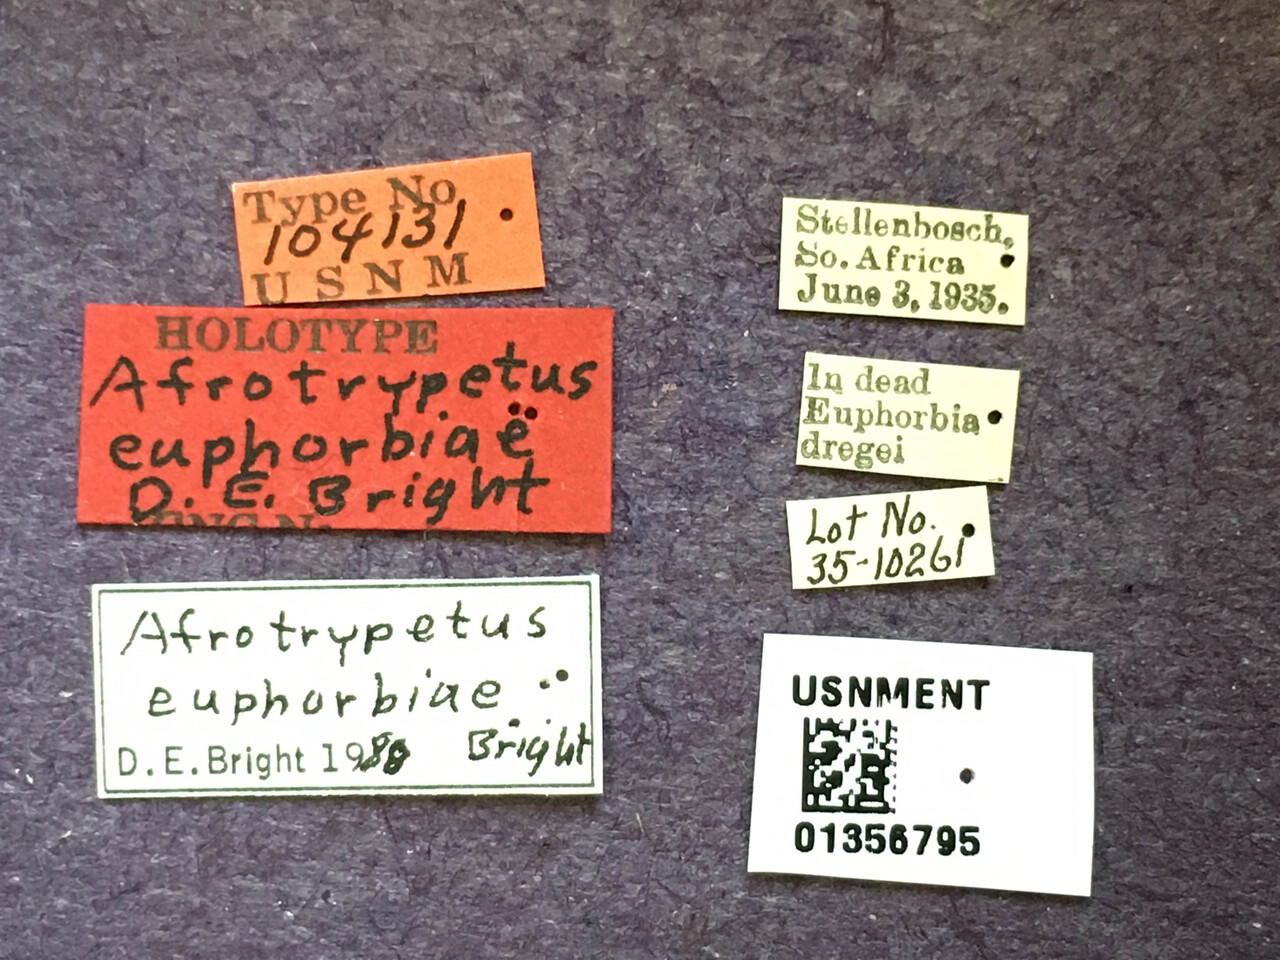 Type No
104131
U S N M
HOLOTYPE
Afrotrypetus
euphorbiae
D. E. Bright
Afrotrypetus
euphorbiae
Bright
D. E. Bright 1980
Stellenbosch,
So. Africa
June 3, 1935.
In dead
Euphorbia
dregei
Lot No.
35-10261
USNMENT
01356795